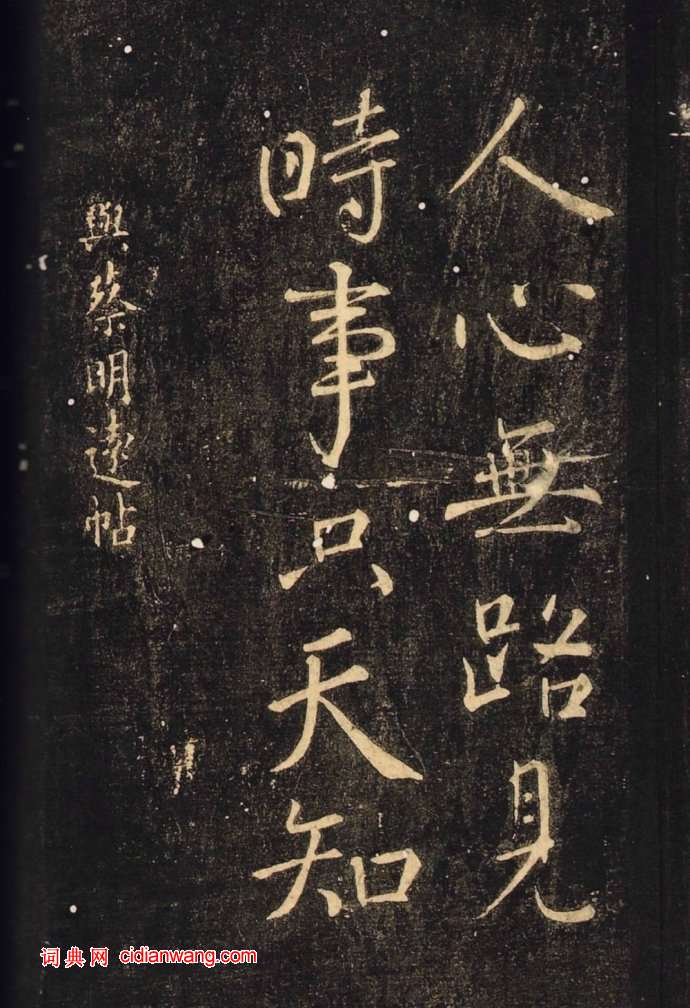 人心無路見
時事只天知
與蔡明遠帖
词典网 cidianwang.com